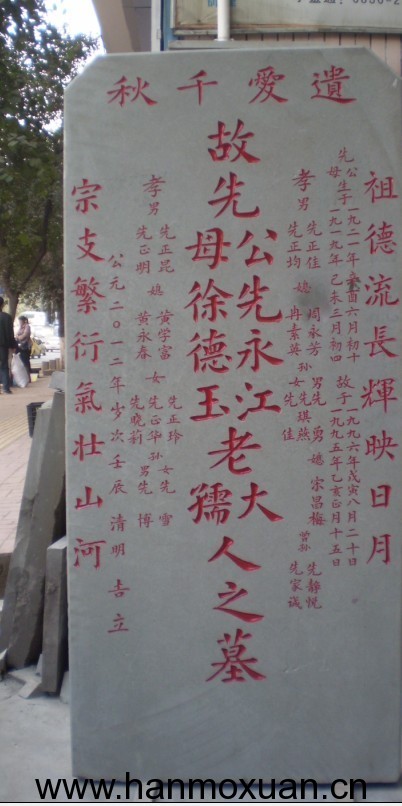 遺愛千秋
祖德流長輝映日月
先公生于一九二一年辛酉六月初十 故于一九九六年戊寅八月二十日
母 一九一九年己未三月初四 一九九五年乙亥正月十五日
孝男 先正佳 媳 周永芳 男先勇 媳 宋昌梅 曾孙 先靜悦
先正均 冉素英 孙女先琪然 先佳 先家诚
故先公先永江老大人之墓
母徐德玉 孺
孝男 先正昆 媳 黄学富 女 先正玲 孙女先雪
先正明 黄永春 先正华 孙男先博
先晓莉
公元二0一二年岁次壬辰清明吉立
宗支繁衍氣壯山河
www.hanmoxuan.cn